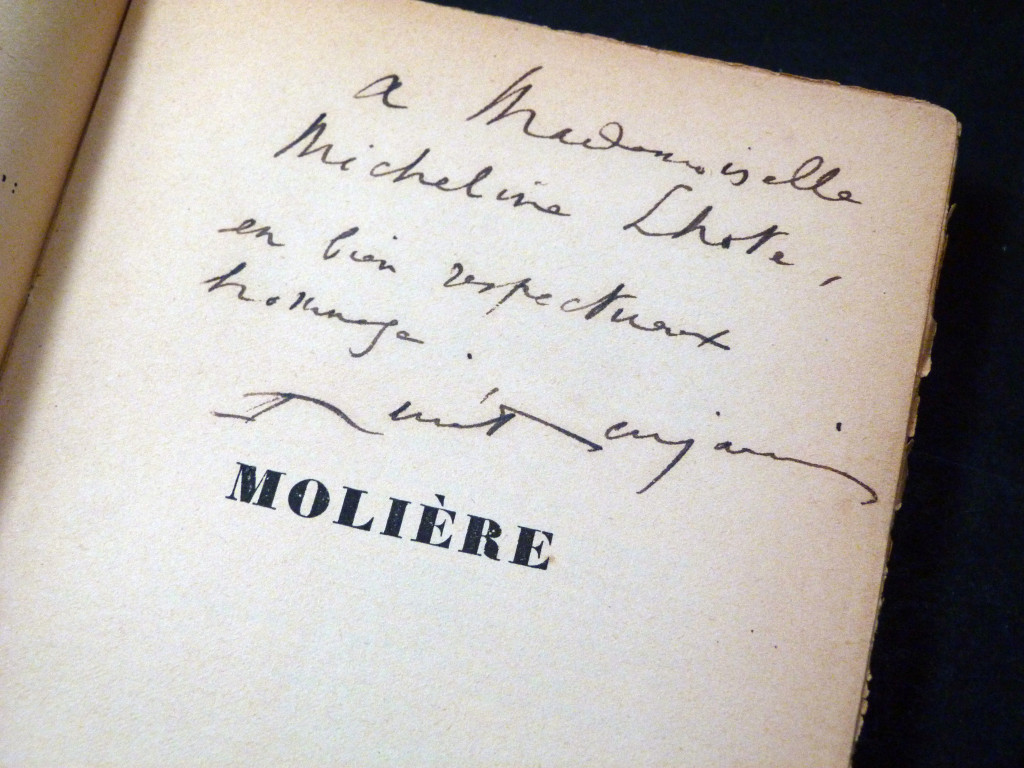 a Mademoiselle
Micheline Lhote,
en bien respectueux
hommage.
René Benjamin
MOLIÈRE